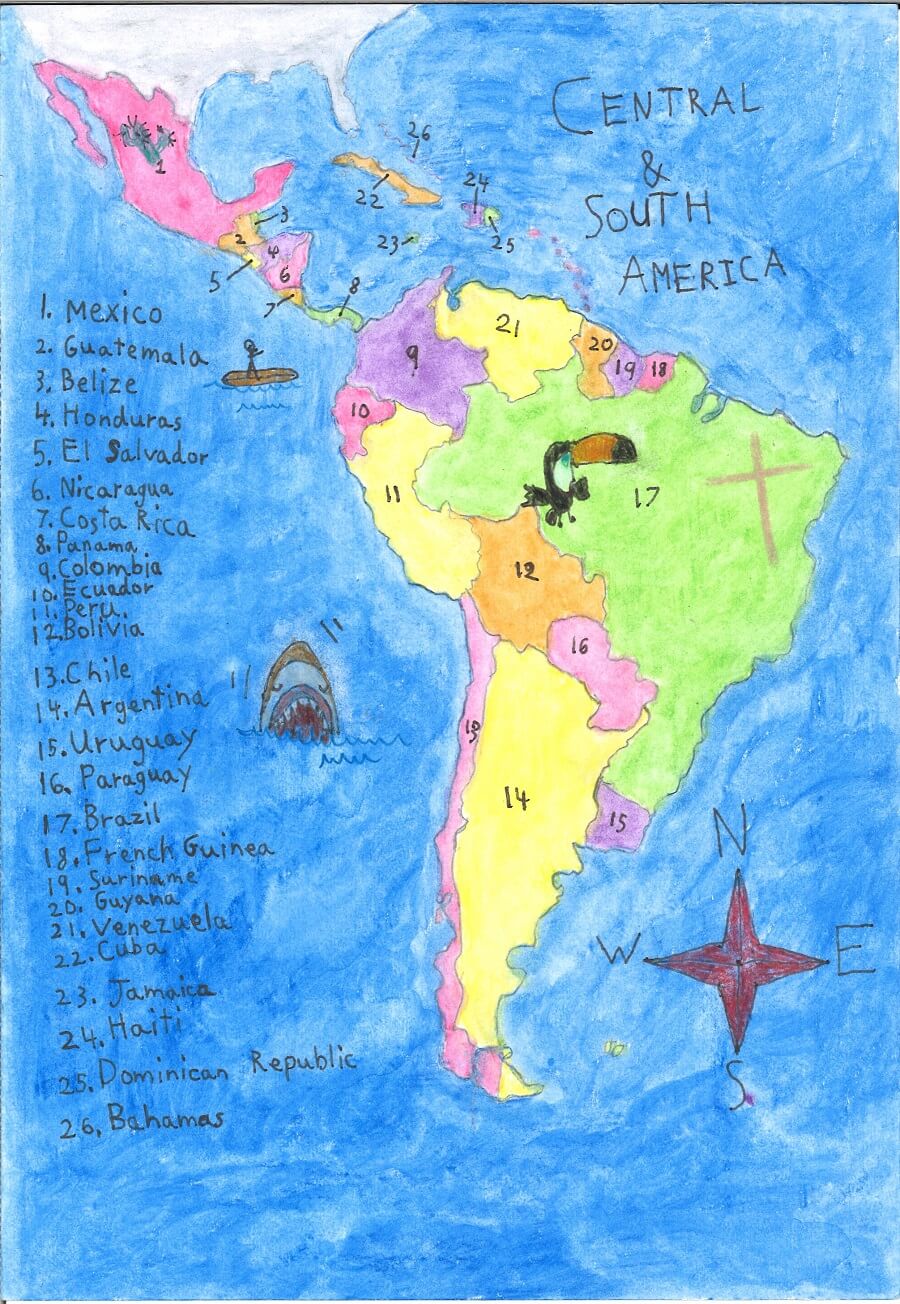 CENTRAL
&
SOUTH
AMERICA
1. Mexico
2. Guatemala
3. Belize
4. Honduras
5. El Salvador
6. Nicaragua
7. Costa Rica
8. Panama
9. Colombia
10. Ecuador
11. Peru.
12. Bolivia
13. Chile
14. Argentina
15. Uruguay
16. Paraguay
17. Brazil
18. French Guinea
19. Suriname
20. Guyana
21. Venezuela
22. Cuba
23. Jamaica
24. Haiti
25. Dominican Republic
26. Bahamas
1
26
22
24
3
2
4
23
25
5
6
7
8
21
20
19
18
9
10
11
17
12
16
13
14
15
N
W E
S